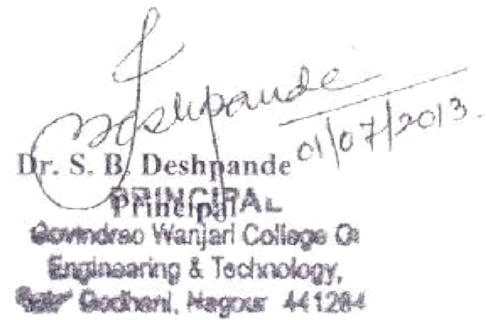 Deshpande
01/07/2013.
Dr. S. B. Deshpande
Principal
PRINCIPAL
Govindrao Wanjari College Of
Engineering & Technology,
Godhani, Nagpur 441204